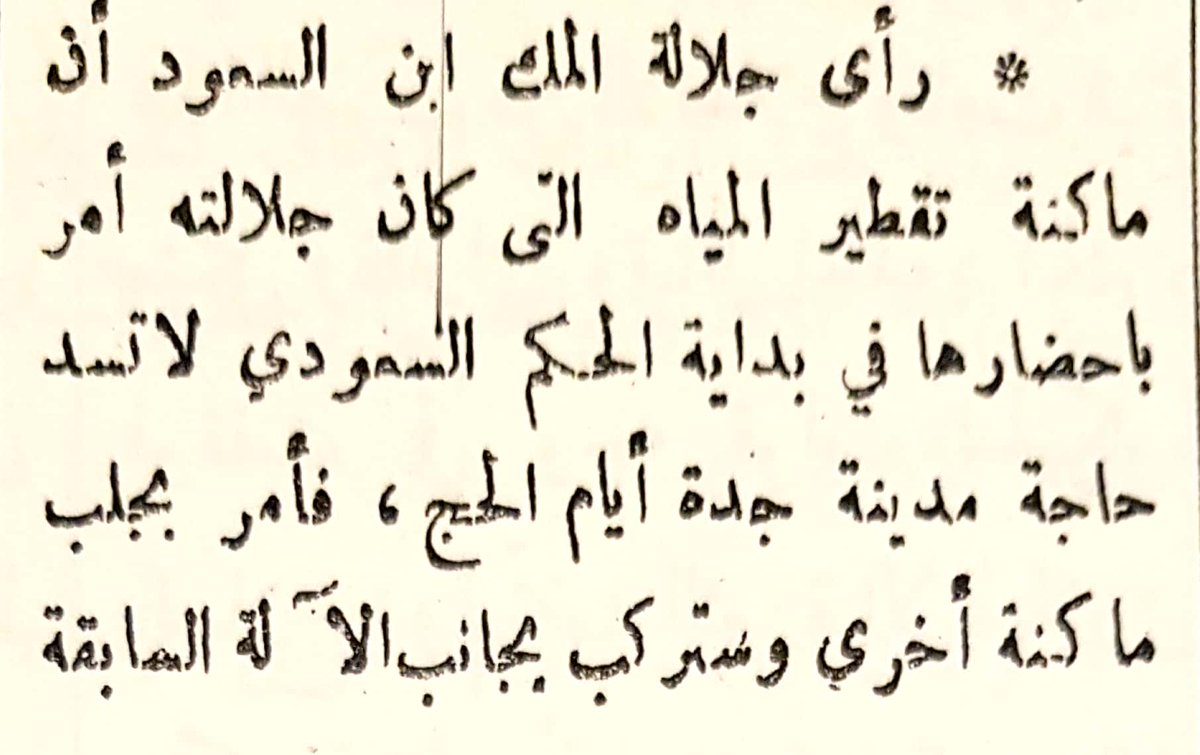 * رأى جلالة الملك ابن السعود أن
ماكنة تقطير المياه التى كان جلالته أمر
باحضارها في بداية الحكم السعودي لاتسد
حاجة مدينة جدة أيام الحج ، فأمر بجلب
ماكنة أخري وستركب بجانب الآلة السابقة